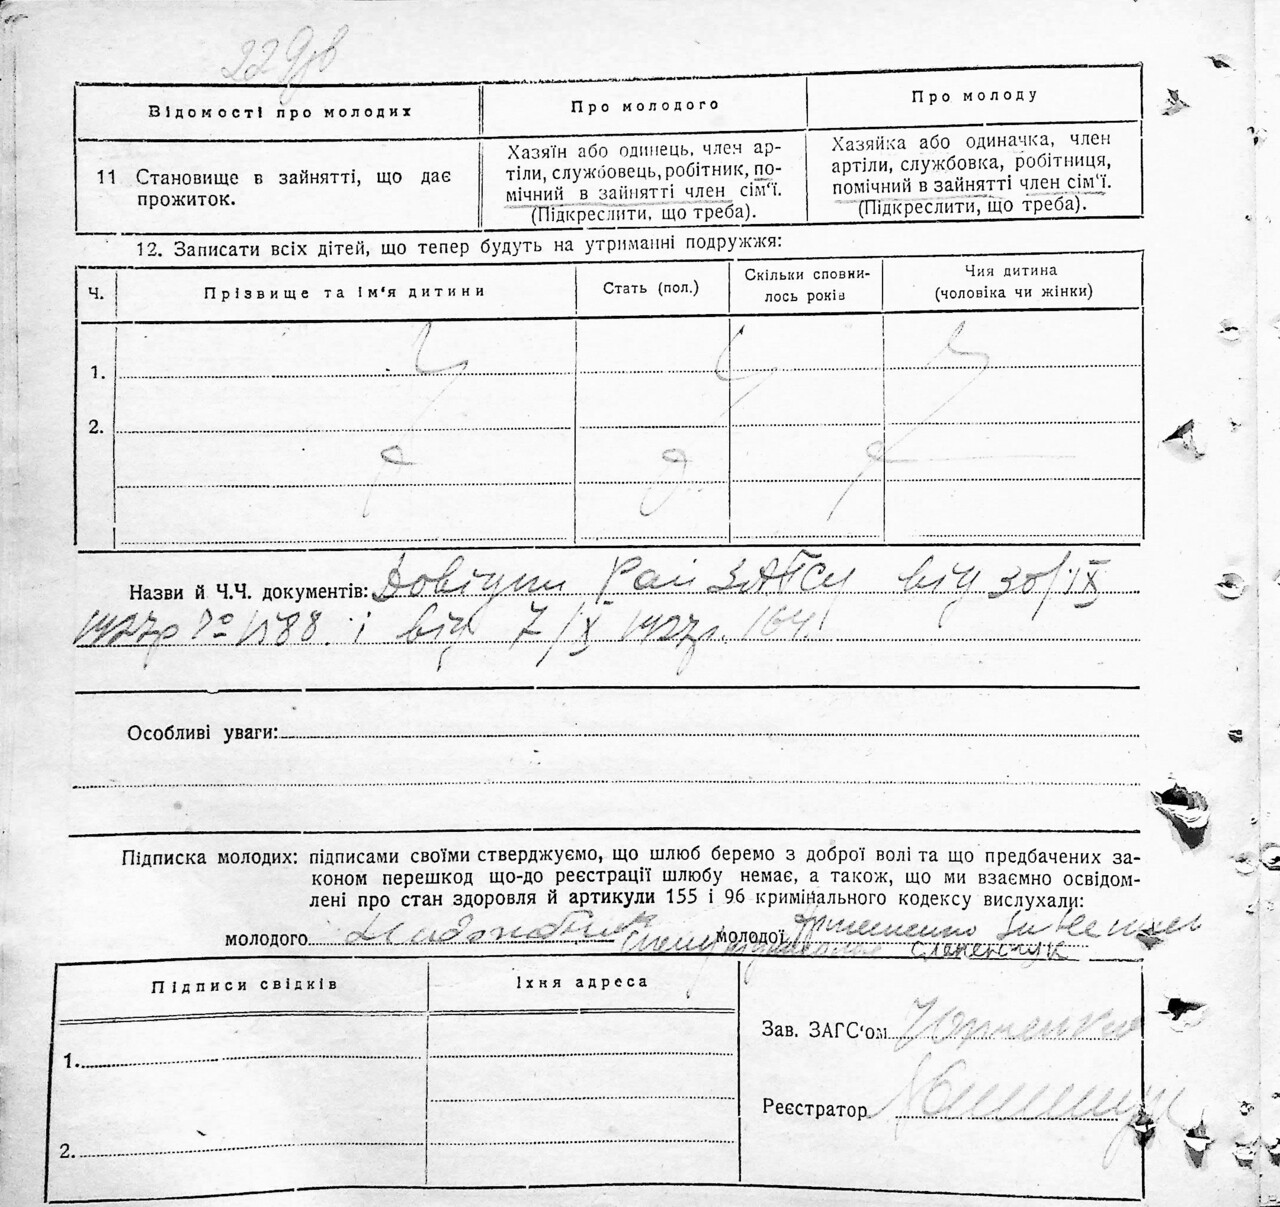 229зв
Відомості про молодих
Про молодого
Про молоду
11 Становище в зайнятті, що дає
прожиток.
Хазяїн або одинець, член ар-
тіли, службовець, робітник, по-
мічний в зайнятті член сім'ї.
(Підкреслити, що треба).
Хазяйка або одиначка, член
артіли, службовка, робітниця,
помічний в зайнятті член сім'ї.
(Підкреслити, що треба).
12. Записати всіх дітей, що тепер будуть на утриманні подружжя:
Ч.
Прізвище та ім'я дитини
Стать (пол.)
Скільки сповни-
лось років
Чия дитина
(чоловіка чи жінки)
1.
2.
Назви й Ч.Ч. документів: Довідки Рай ЗАГСу від 30/IX
1927р № 1588. і від 7/X 1927р. 164.
Особливі уваги:
Підписка молодих: підписами своїми стверджуємо, що шлюб беремо з доброї волі та що предбачених за-
коном перешкод що-до реєстрації шлюбу немає, а також, що ми взаємно освідом-
лені про стан здоров'я й артикули 155 і 96 кримінального кодексу вислухали:
молодого
молодої
Підписи свідків
Їхня адреса
1.
2.
Зав. ЗАГС'ом
Реєстратор